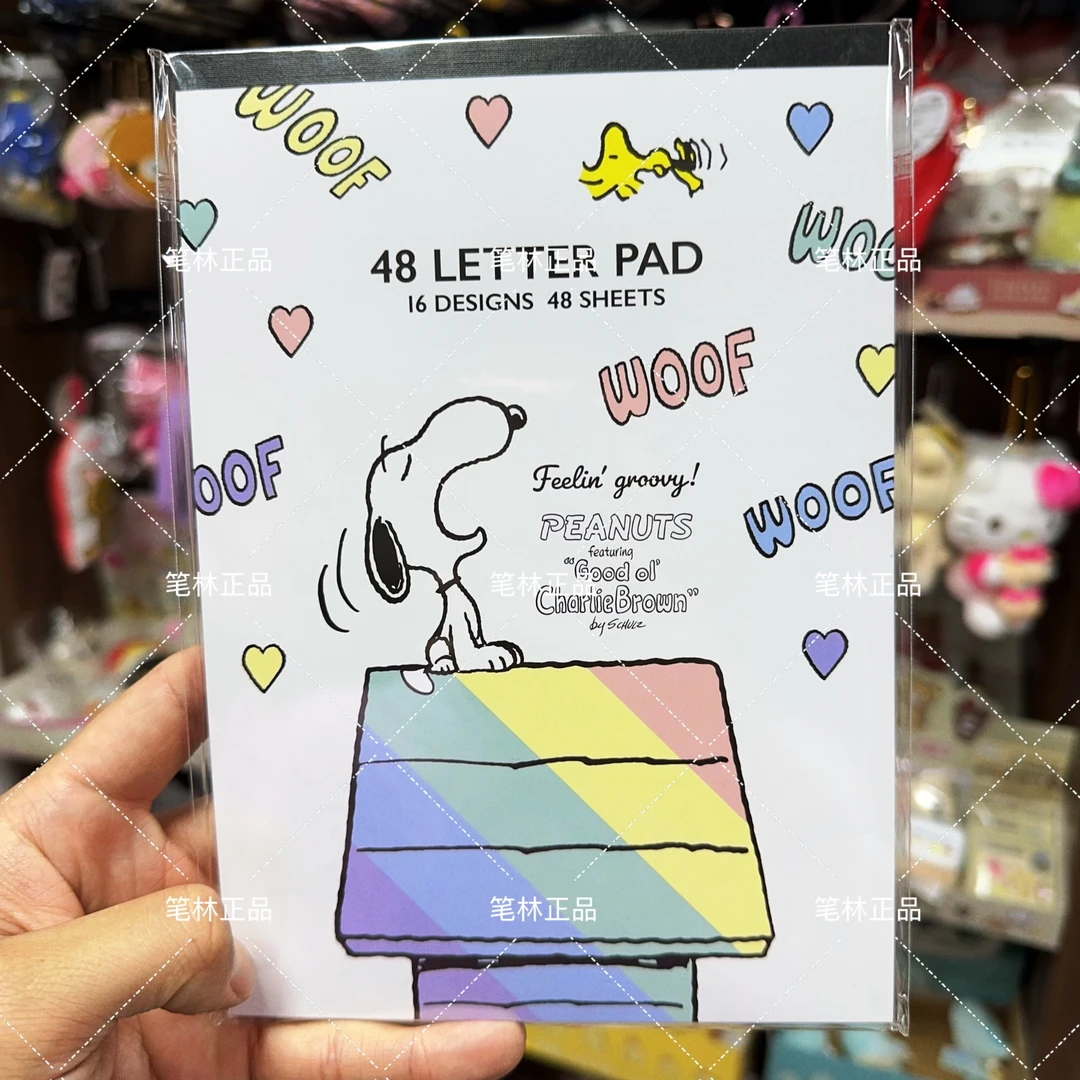 WOOF
WOO
48 LETTER PAD
16 DESIGNS 48 SHEETS
WOOF
OOF
Feelin' groovy!
WOOF
PEANUTS
featuring
"Good ol'
Charlie Brown"
by SCHULZ
笔林正品 笔林正品 笔林正品
笔林正品 笔林正品 笔林正品
笔林正品 笔林正品 笔林正品